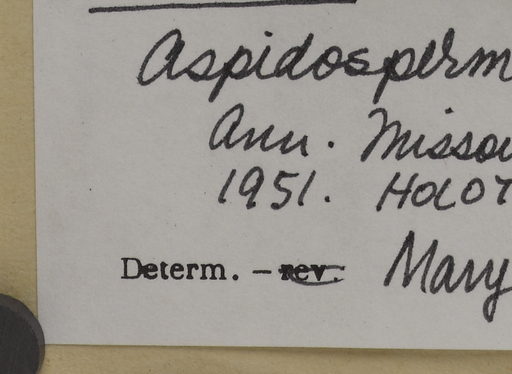 Aspidosperm
Ann. Missou
1951. HOLOT
Determ. – rev. Mary